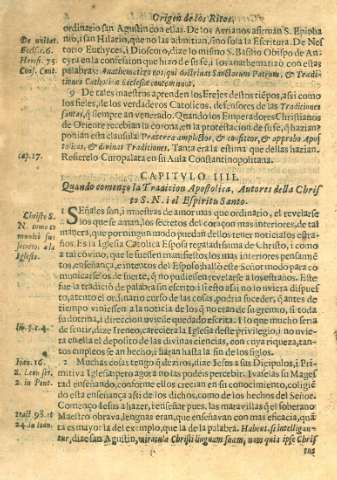 2 Origen de los Ritos.
ordinario san Agustin con ellas. De los Arrianos afirman S. Epipha
nio, i san Hilario, que no las admitian, sino sola la Escritura. De Nes
torio Euthyces, i Dioscoro, dize lo mismo S. Basilio Obispo de An-
cyra en la confesion que hizo de su fè, i los anathematizò con estas
palabras: Anathematizo tos qui doctrinas Sanctorum Patrum, & Tradi-
tiones Catholicæ Ecclesiæ contemnunt.
9 De tales maestros aprenden los Erejes destos tiepos, asi como
los fieles, de los verdaderos Catolicos, defensores de las Traditiones
santas, q̃ siempre an venerado. Quando los Emperadores Christianos
de Oriente recebian la corona, en la protestacion de su fè, q̃ hazian
ponian esta clausula Præterea amplector, & confiteor, & approbo Apos
tolicas, & divinas Traditiones. Tanta era la estima que dellas hazian.
Refierelo Curopalata en su Aula Constantinopolitana.
CAPITVLO IIII.
Quando començo la Tradicion Apostolica, Autores della Chris
to S. N. i el Espiritu Santo.
1 SEñales son, i muestras de amor mas que ordinario, el revelarse
los que se aman, los secretos del coraçon mas interiores, de tal
manera, que por ningun modo puedan del tener noticia los estra-
ños. Es la Iglesia Catolica Esposa regaladisima de Christo, i como
a tan cavida, le quiso hazer manifiestos los mas interiores pensamẽ
tos, enseñança, e intentos del Esposo hallò este Señor modo para co
municarselos de suerte, q̃ no pudiesen revelarse a los estraños. Este
fue la tradiciõ de palabra sin escrito i si esto asi no lo uviera dispues
to, atento el ordinario curso de las cosas, podria suceder, q̃ antes de
tiempo viniesen a la noticia de los q̃ no eran de su gremio, si toda
su dotrina, i direccion uviese quedado escrita. Por lo que mucho seria
de sentir, dize Ireneo, careciera la Iglesia deste privilegio, i no uvie-
ra en ella el deposito de las divinas ciencias, con cuya riqueza, tan-
tos empleos se an hecho, i haran hasta la fin de los siglos.
2 Muchas cosas tengo q̃ deziros, dize Iesus a sus Dicipulos, i Pri
mitiva Iglesia: pero agora no las podeis percebir. Iva elas su Mages
tad enseñando, conforme ellos crecian en su conocimiento, coligiẽ
do esta enseñança asi de los dichos, como de los hechos del Señor.
Començo Iesus a hazer, i enseñar pues, las maravillas q̃ el soberano
Maestro obrava, lenguas eran, que enseñavan con mas eficacia, quã
ta es mayor la del exemplo, que la de la palabra. Habent, si intelligan-
tur, dize san Agustin, miracula Christi linguam suam, nam quia ipse Christ
tus
De utilitat.
Hæres. 75.
Conf. Cont.
cap. 17.
Christo S.
lib. 3. c. 4.
Ioan. 16.